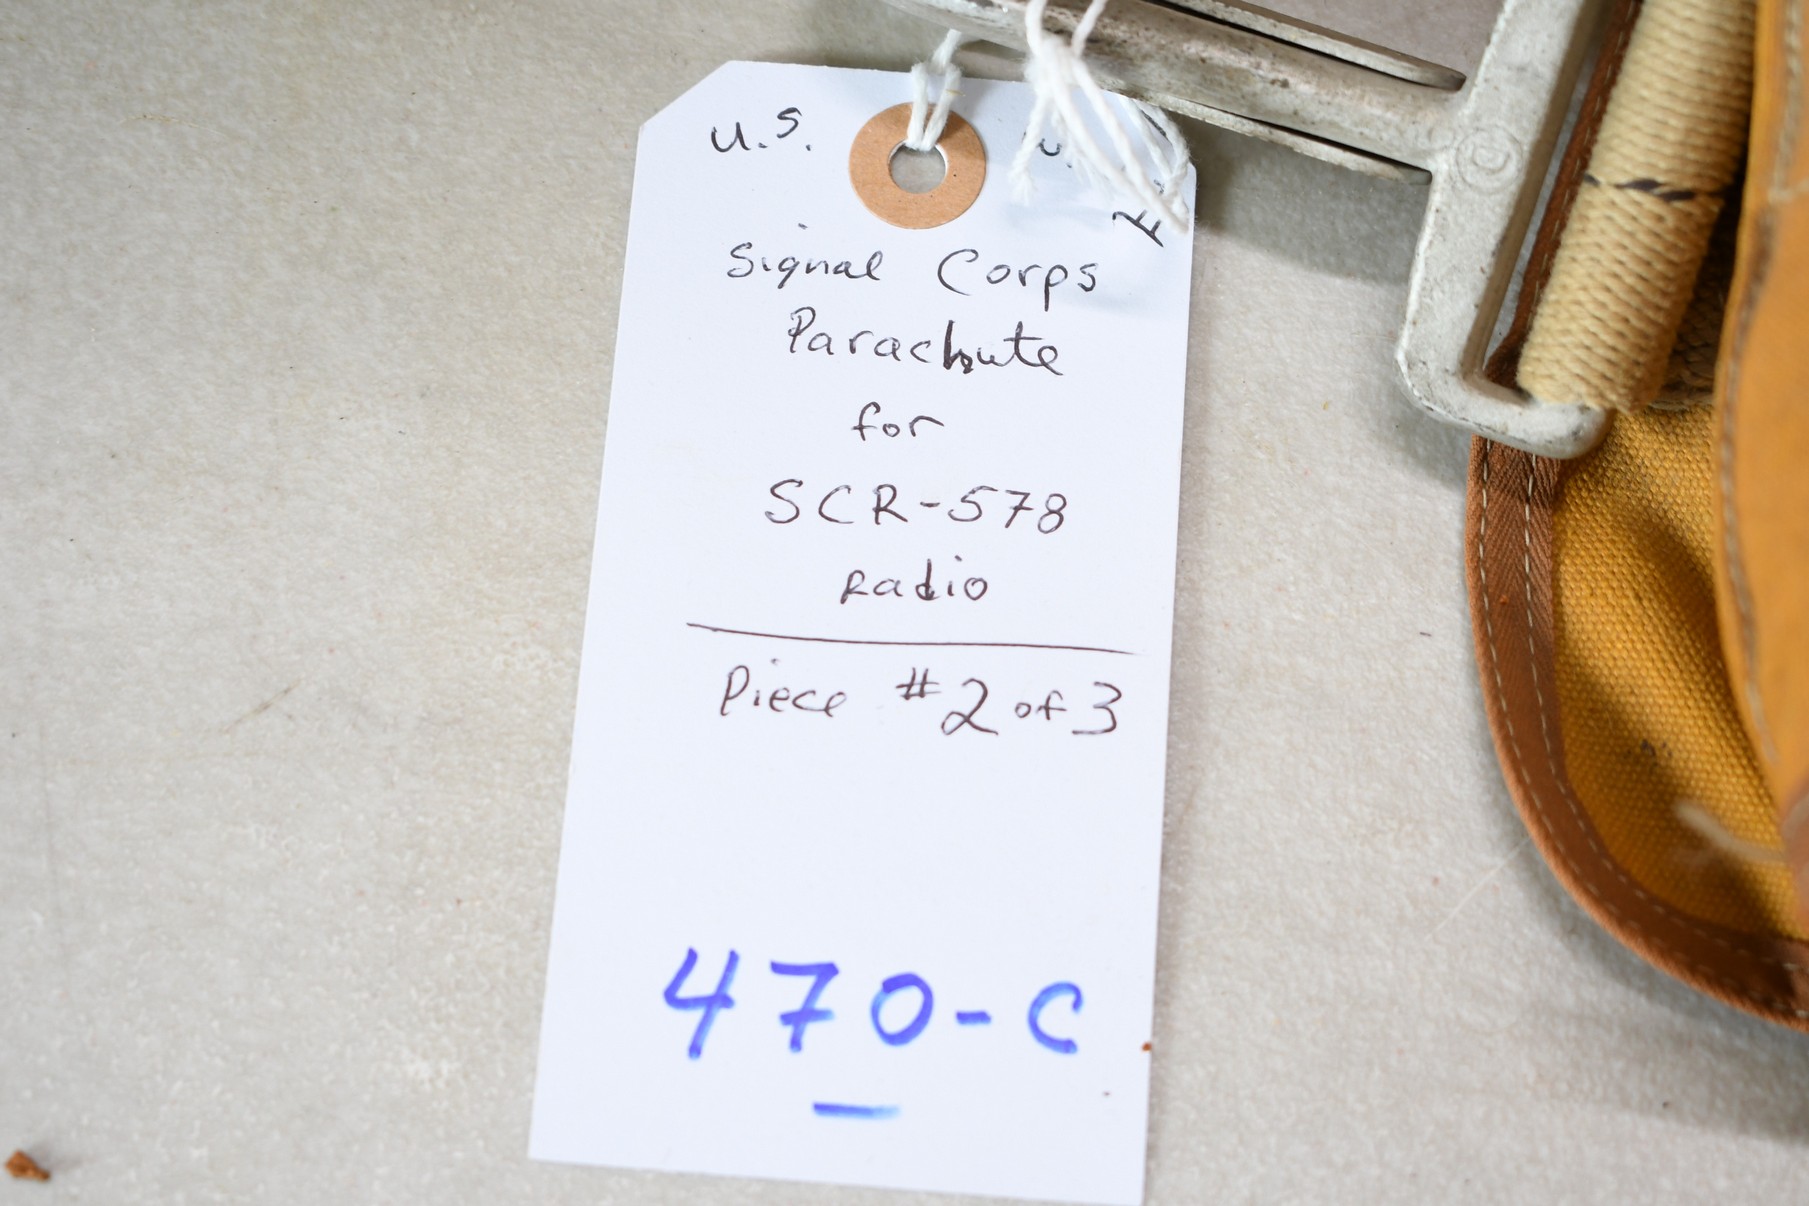 U.S.
Signal Corps
Parachute
for
SCR-578
Radio
Piece #2 of 3
470-C